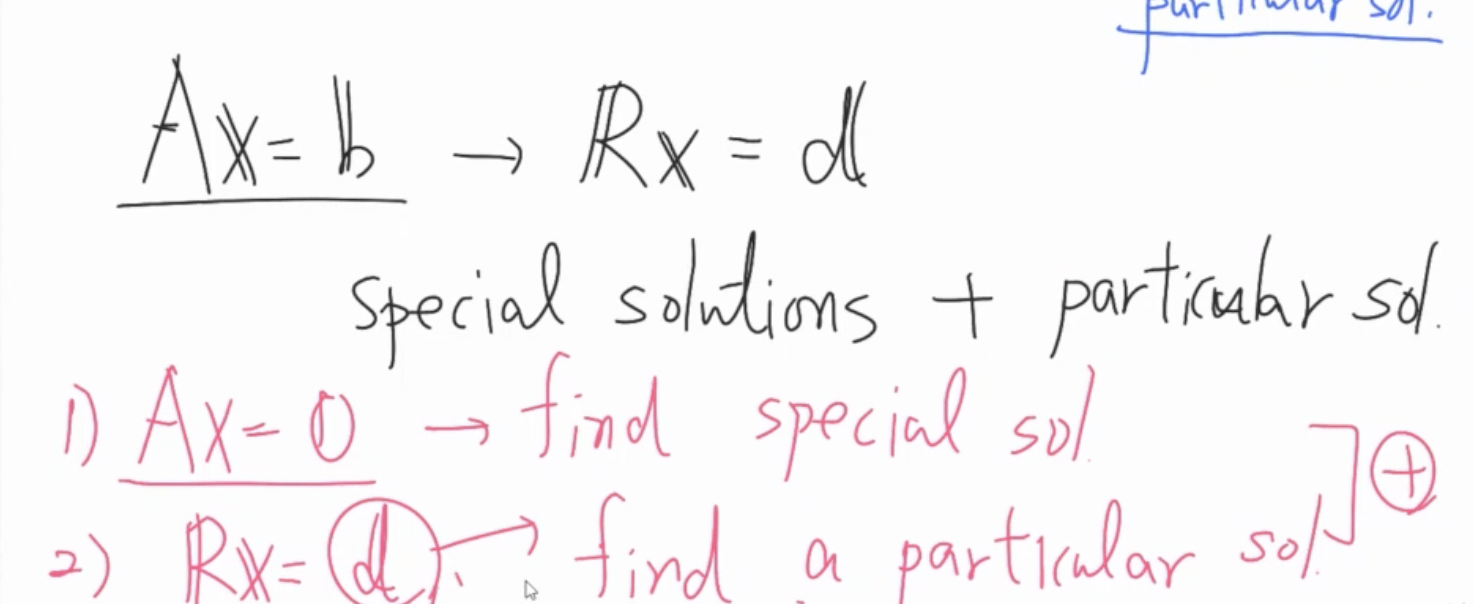 particular sol.
Ax = b → Rx = d
special solutions + particular sol.
1) Ax = 0 → find special sol
2) Rx = d → find a particular sol. ⊕